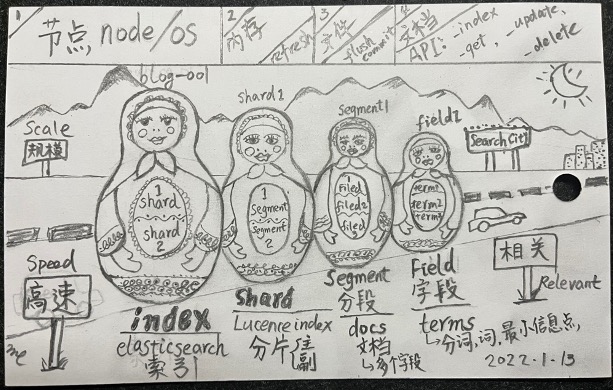 1 节点 node/os
2 内存 refresh
3 文件 flush commit
4 文档 API: _index _update,
_get, _delete
blog-001
shard1
Segment1
field1
Scale
规模
Search City
1 shard
shard 2
1 Segment
Segment 2
1 Filed
Filed2
filed3
term1
term2
term3
Speed
高速
相关
Relevant
index
elasticsearch
索引
Shard
Lucence index
分片
Segment
分段
docs
文档
多个字段
Field
字段
terms
分词,词,最小信息点,
2022-1-13